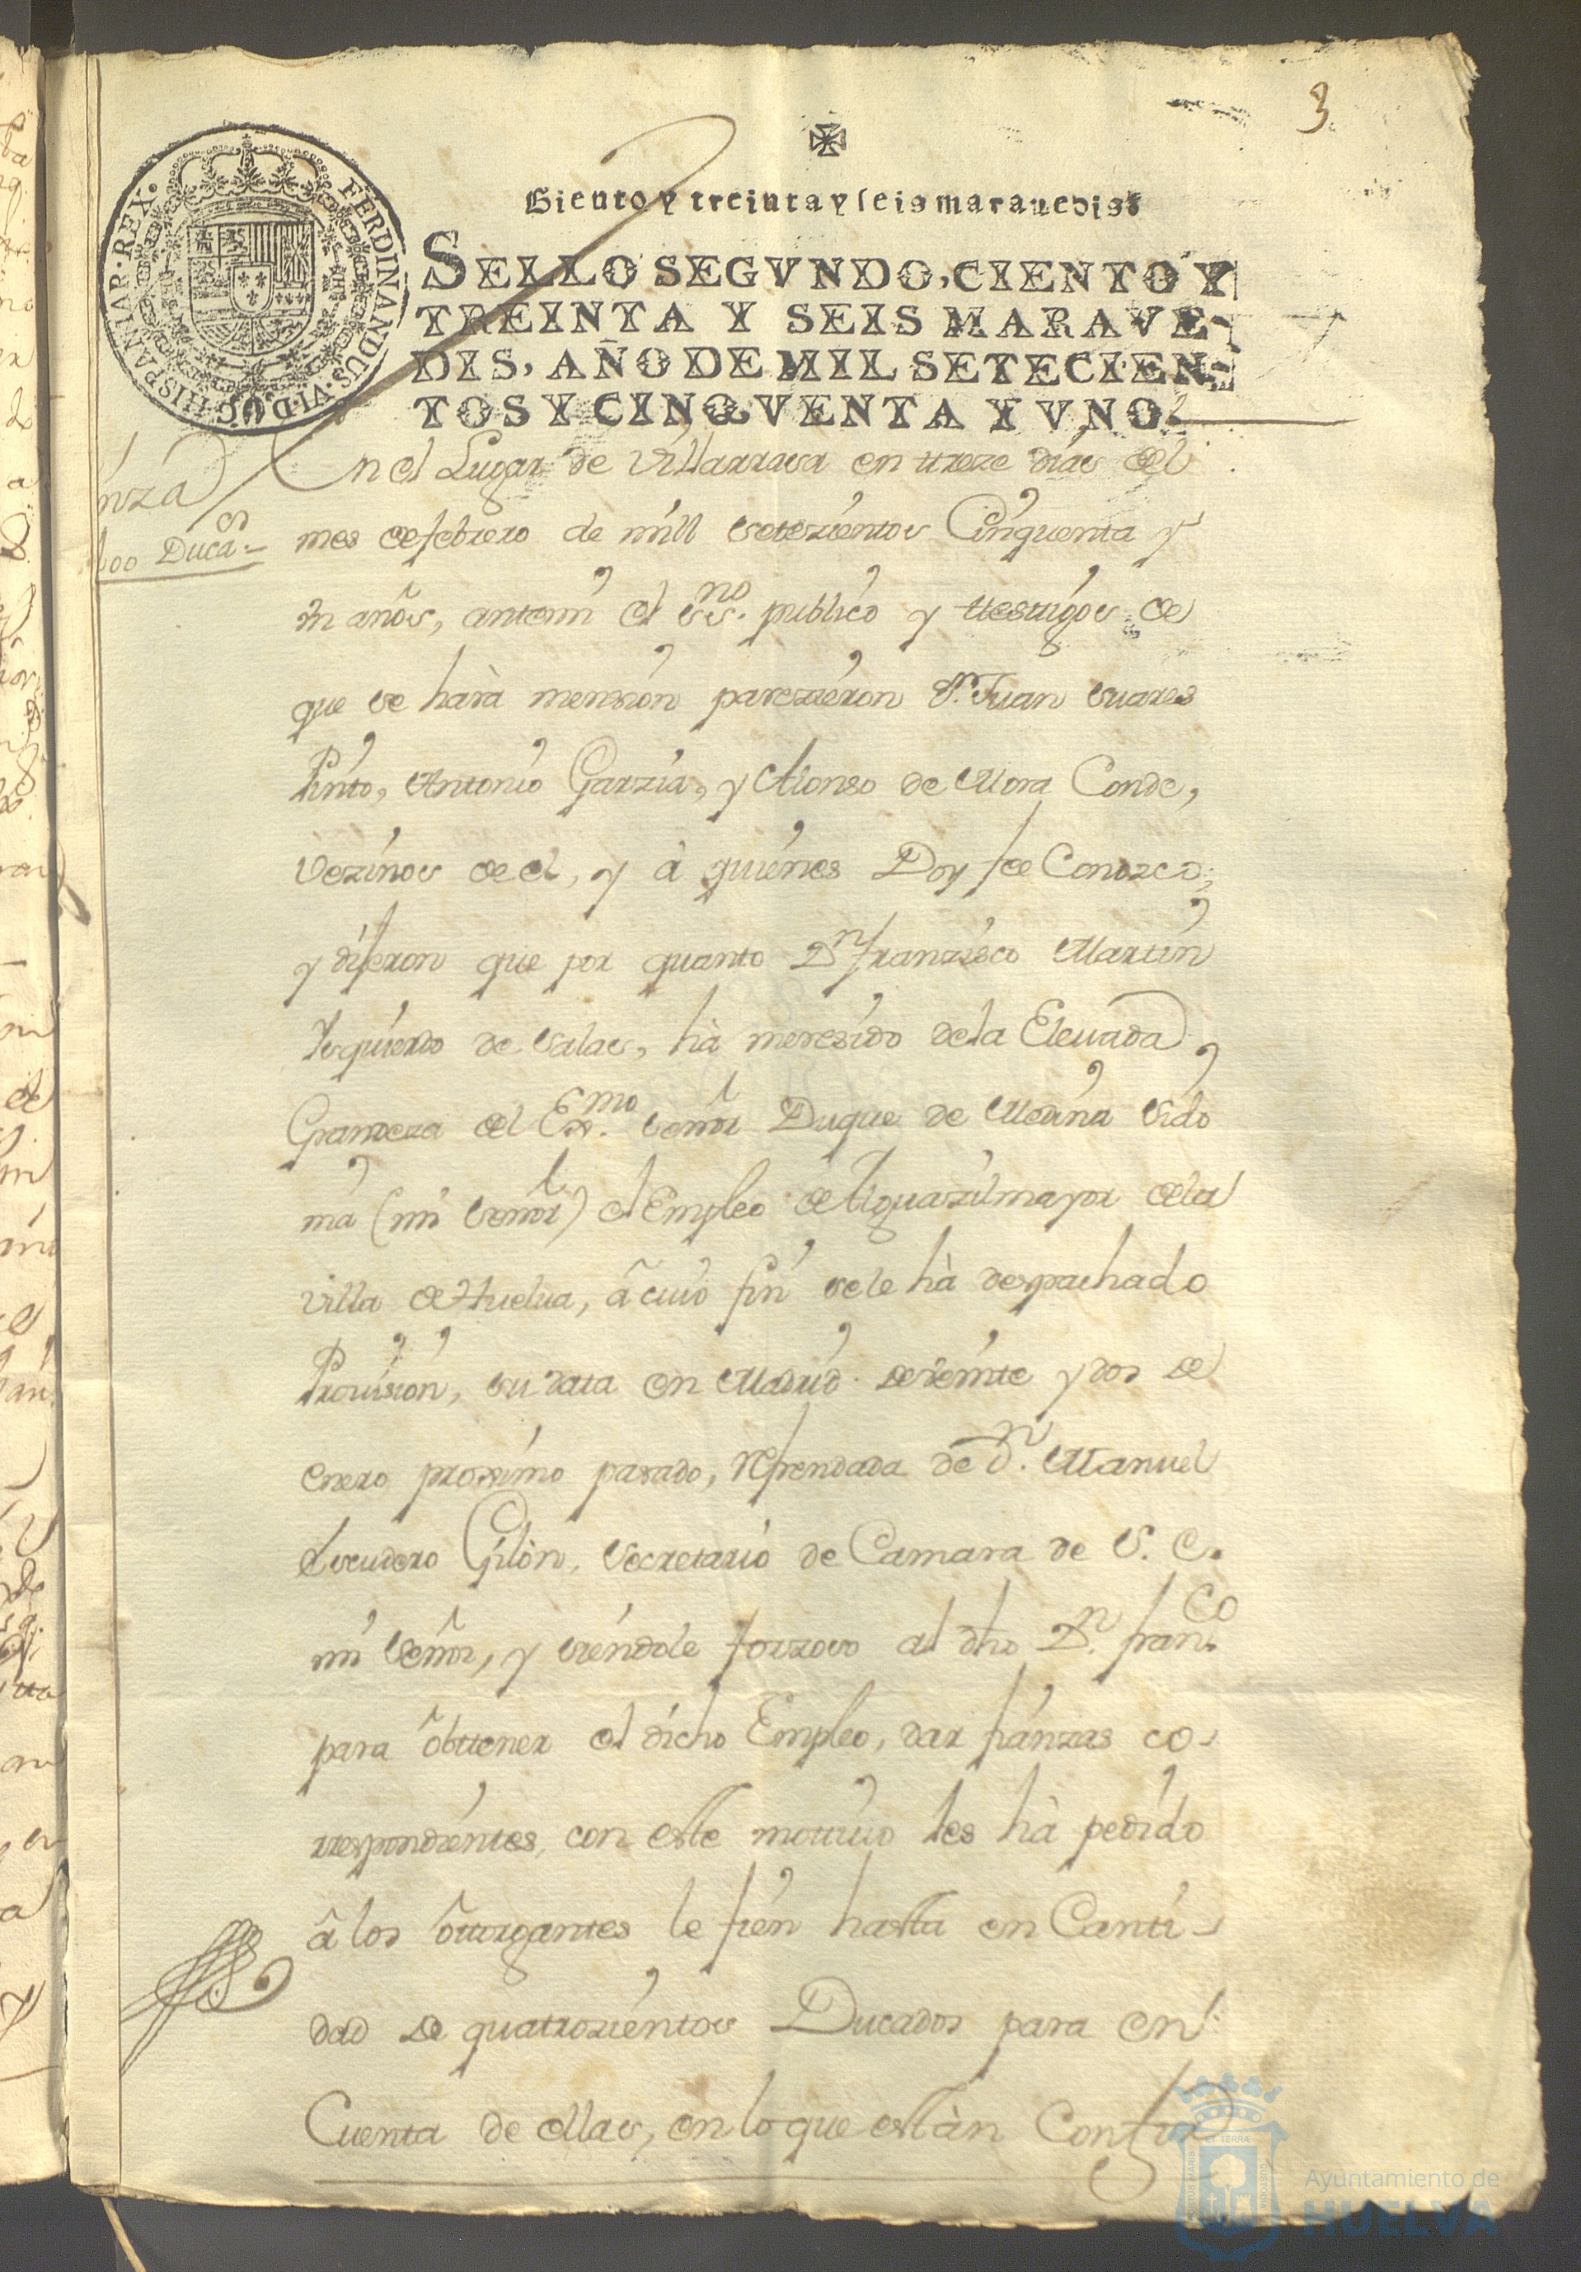 3
Ciento y treinta y seis marauedis
FERDINANDUS·VI·D·G·HISPANIAR·REX·
SELLO SEGVNDO, CIENTO Y
TREINTA Y SEIS MARAVE-
DIS, AÑO DE MIL SETECIEN-
TOS Y CINQVENTA Y VNO.
nza
400 Duca.s
En el Lugar de Villarrasa en treze dias del
mes de febrero de mill setezientos Cinquenta y
un años, ante mi el ss.no publico y testigos de
que se harà mension parezieron D.n Juan suares
Pinto, Antonio Garzia, y Alonso de Mora Conde,
Vezinos de el, y à quienes Doy fee Conozco;
y dijeron que por quanto D.n franzisco Martin
Ysquierdo de salas, hà meresido de la Eleuada
Grandeza del Ex.mo señor Duque de Medina Sido
nia (mi señor) el Empleo de Alguazil mayor dela
villa de Huelua, à cuio fin se le hà despachado
Prouision, su data en Madrid de veinte y dos de
enero proximo pasado, refrendada de D.n Manuel
Escudero Gilòn, Secretario de Camara de S. E.
mi señor, y siendole forzoso al dho D.n fran.co
para obttener el dicho Empleo, dar fianzas co-
rrespondientes, con este mottiuo les hà pedido
à los otorgantes le fien hasta en Canti-
dad de quatrozientos Ducados para en
Cuenta de ellas, en lo que estàn
Ayuntamiento de
HUELVA